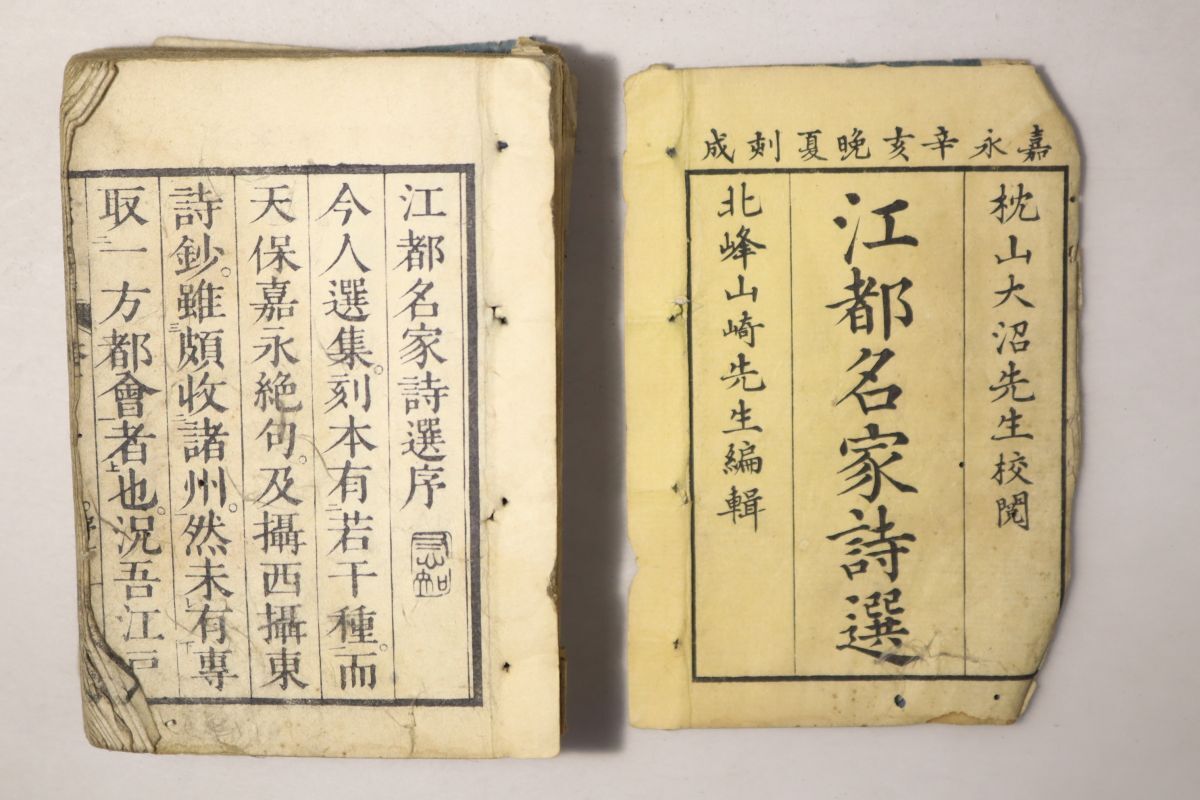 嘉永辛亥晚夏刻成
枕山大沼先生校閱
江都名家詩選
北峰山崎先生編輯
江都名家詩選序
今人選集。刻本有若干種。而
天保嘉永絶句。及攝西攝東
詩鈔。雖頗收諸州。然未有專
取一方都會者也。況吾江戸